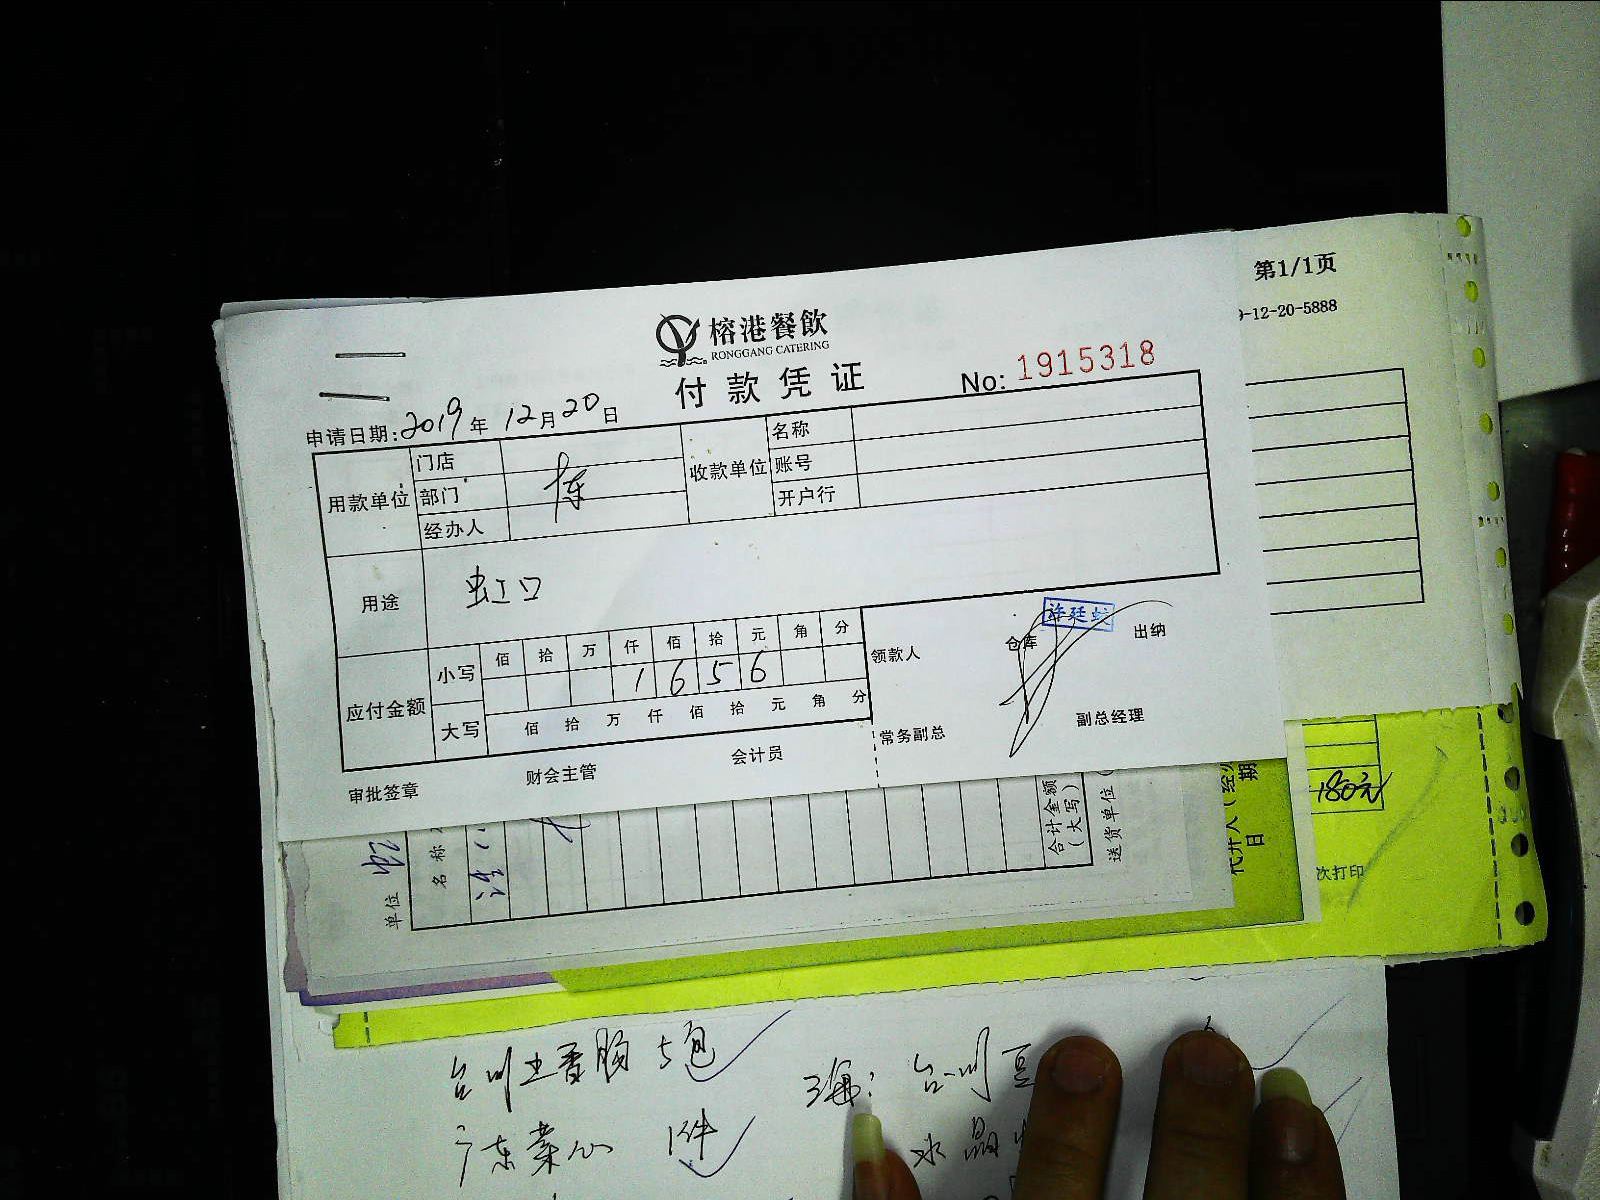 第1/1页
9-12-20-5888
榕港餐飲
RONGGANG CATERING
付款凭证
No: 1915318
申请日期: 2019年12月20日
用款单位 门店 收款单位 名称
部门 陈 账号
经办人 开户行
用途 虹口
应付金额 小写 佰 拾 万 仟 佰 拾 元 角 分
1 6 5 6
大写 佰 拾 万 仟 佰 拾 元 角 分
领款人 仓库 出纳
许廷
常务副总 副总经理
审批签章 财会主管 会计员
180元
次打印
单位
名称
合计金额
(大写)
送货单位(
期
日
台州土香肠 5包
广东菜心 1件
台州豆
水晶